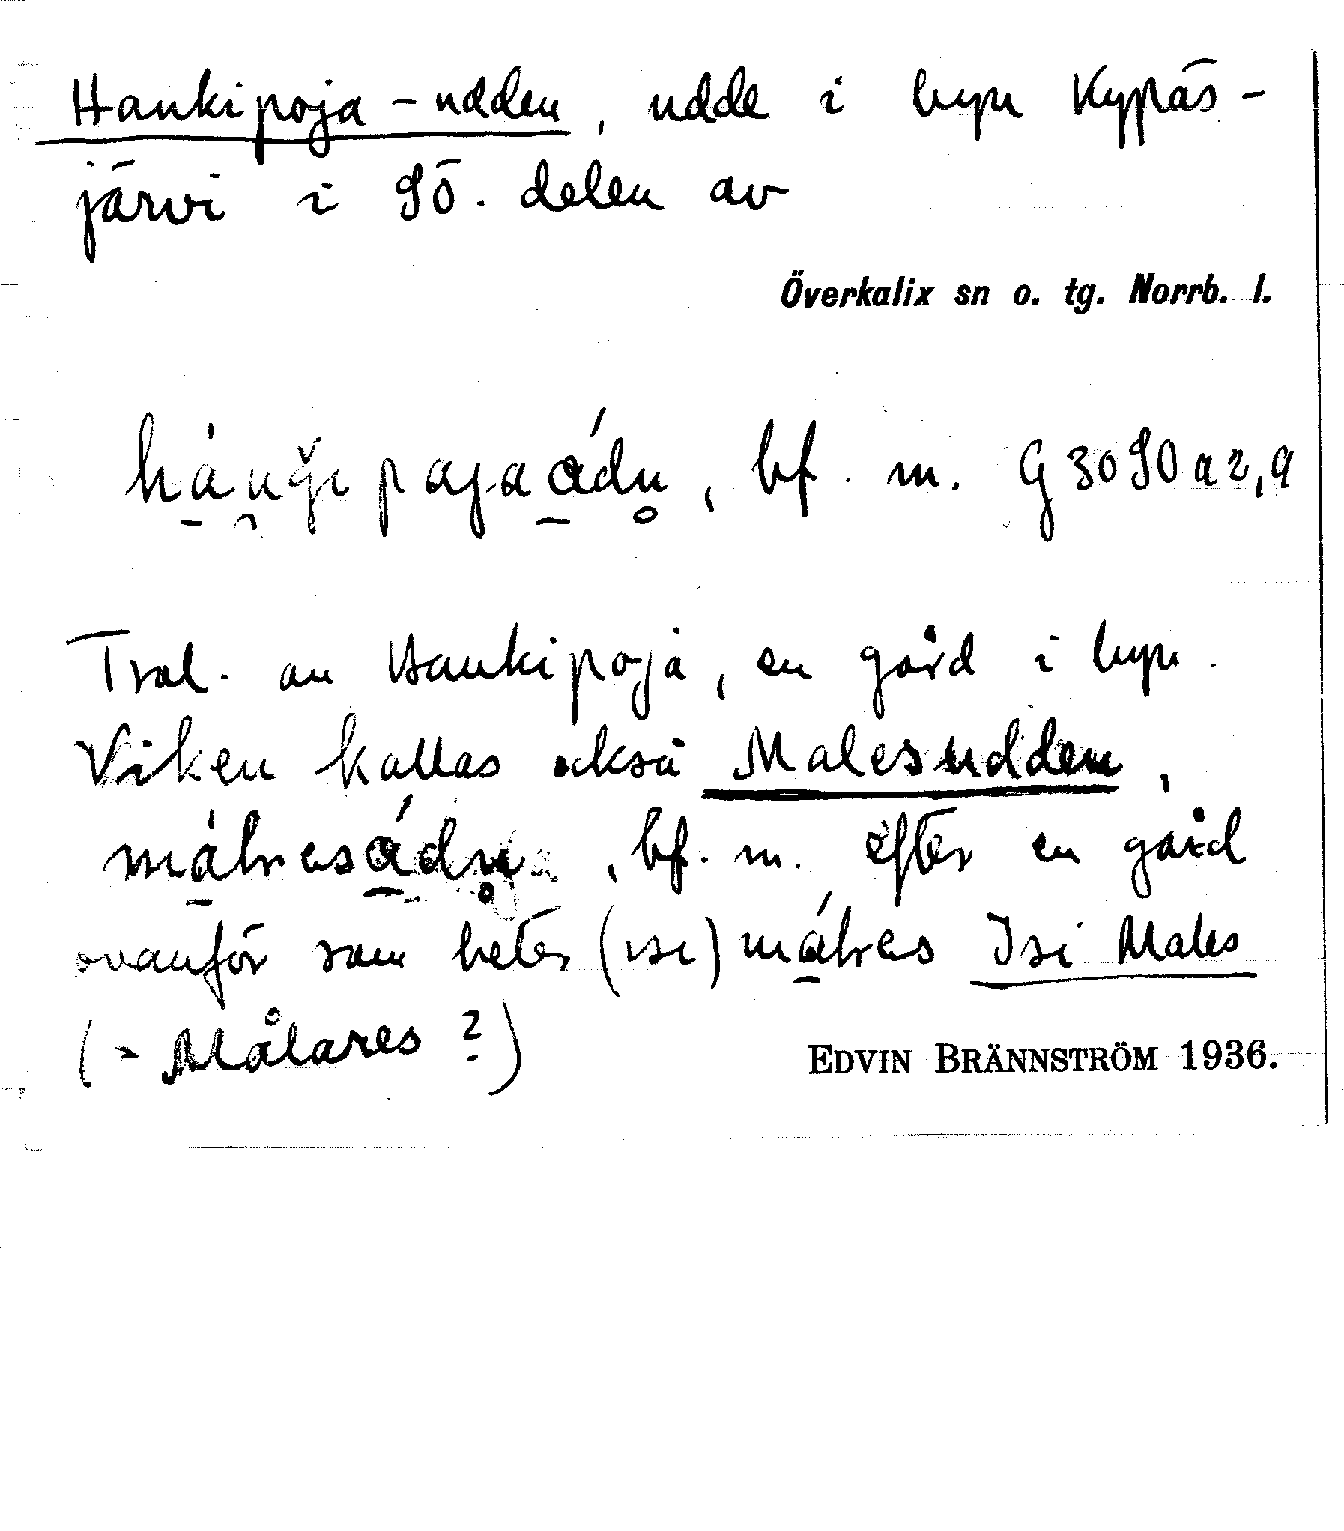 Hankipoja-udden, udde i byn Kypäs-
järvi i SÖ. delen av
Överkalix sn o. tg. Norrb. l.
bf. m. G 3090 a 2,9
Tral. an Hankipoja, en gård i byn.
Viken kallas också Malesudden,
bf. m. efter en gård
ovanför som heter Isi Males
(= Målares ?)
EDVIN BRÄNNSTRÖM 1936.